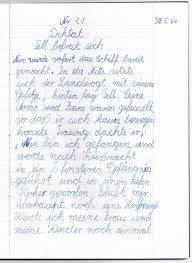 Nr. 11
Diktat
Tell befreit sich
Nun wurde sofort das Schiff bereit
gemacht. In die Mitte setzte
sich der Landvogt mit seinem
hinten lag Tell. Seine
Arme und Beine waren gefesselt,
so daß er sich kaum bewegen
konnte. Traurig dachte er:
Nun bin ich gefangen und
werde nach Küßnacht
in ein finsteres Gefängnis
geführt und in einen tiefen
Kerker geworfen. Bleibt mir
überhaupt noch eine Hoffnung
Werde ich meine Frau und
meine Kinder noch einmal